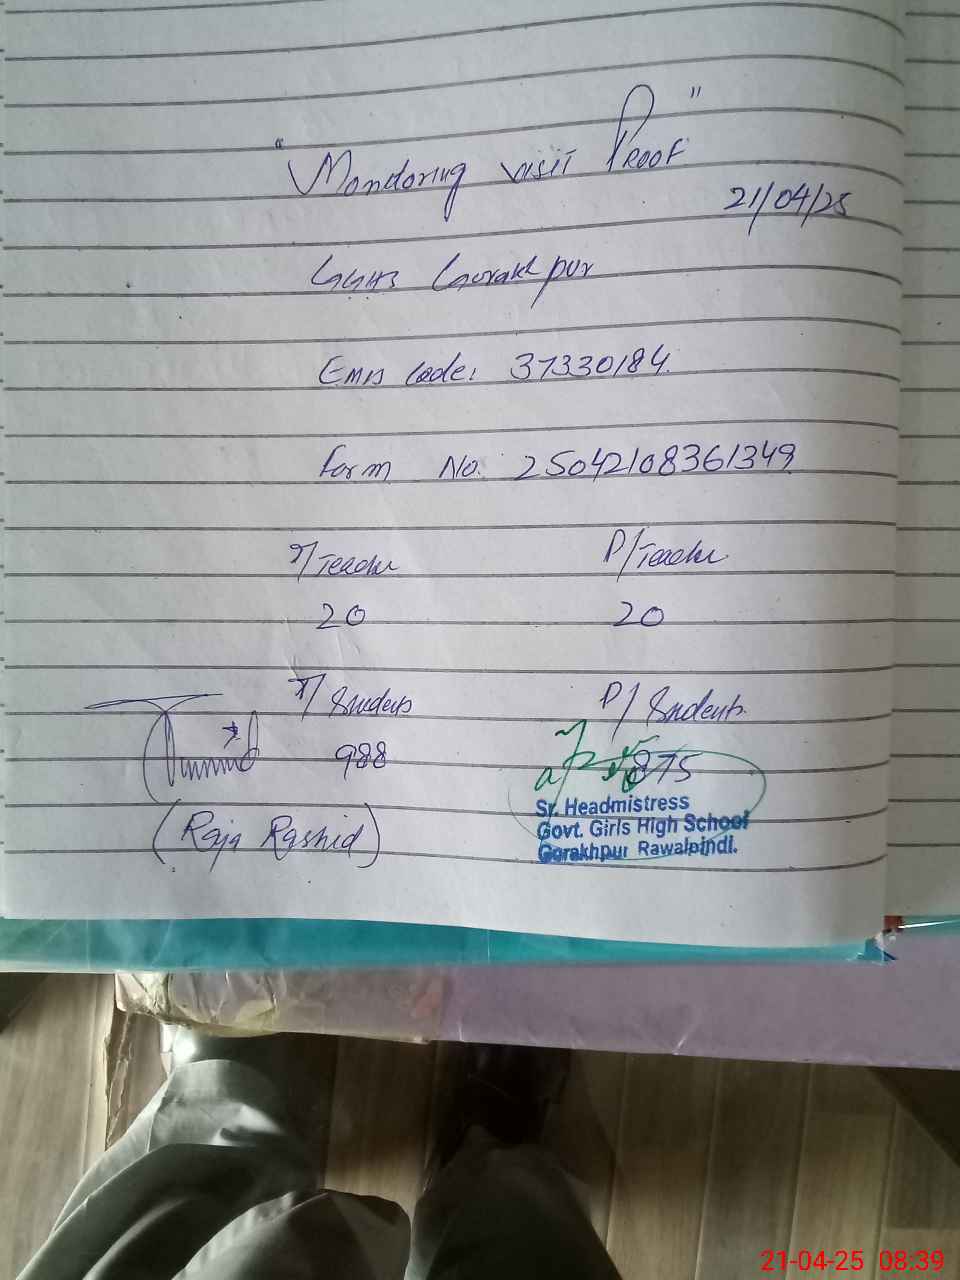 "Monitoring visit Proof"
21/04/25
GGHS Gorakhpur
Emis Code: 37330184.
Form No. 25042108361349
T/Teacher P/Teacher
20 20
T/Students P/Students.
988 875
(Raja Rashid)
Sr. Headmistress
Govt. Girls High School
Gorakhpur Rawalpindi.
21-04-25 08:39